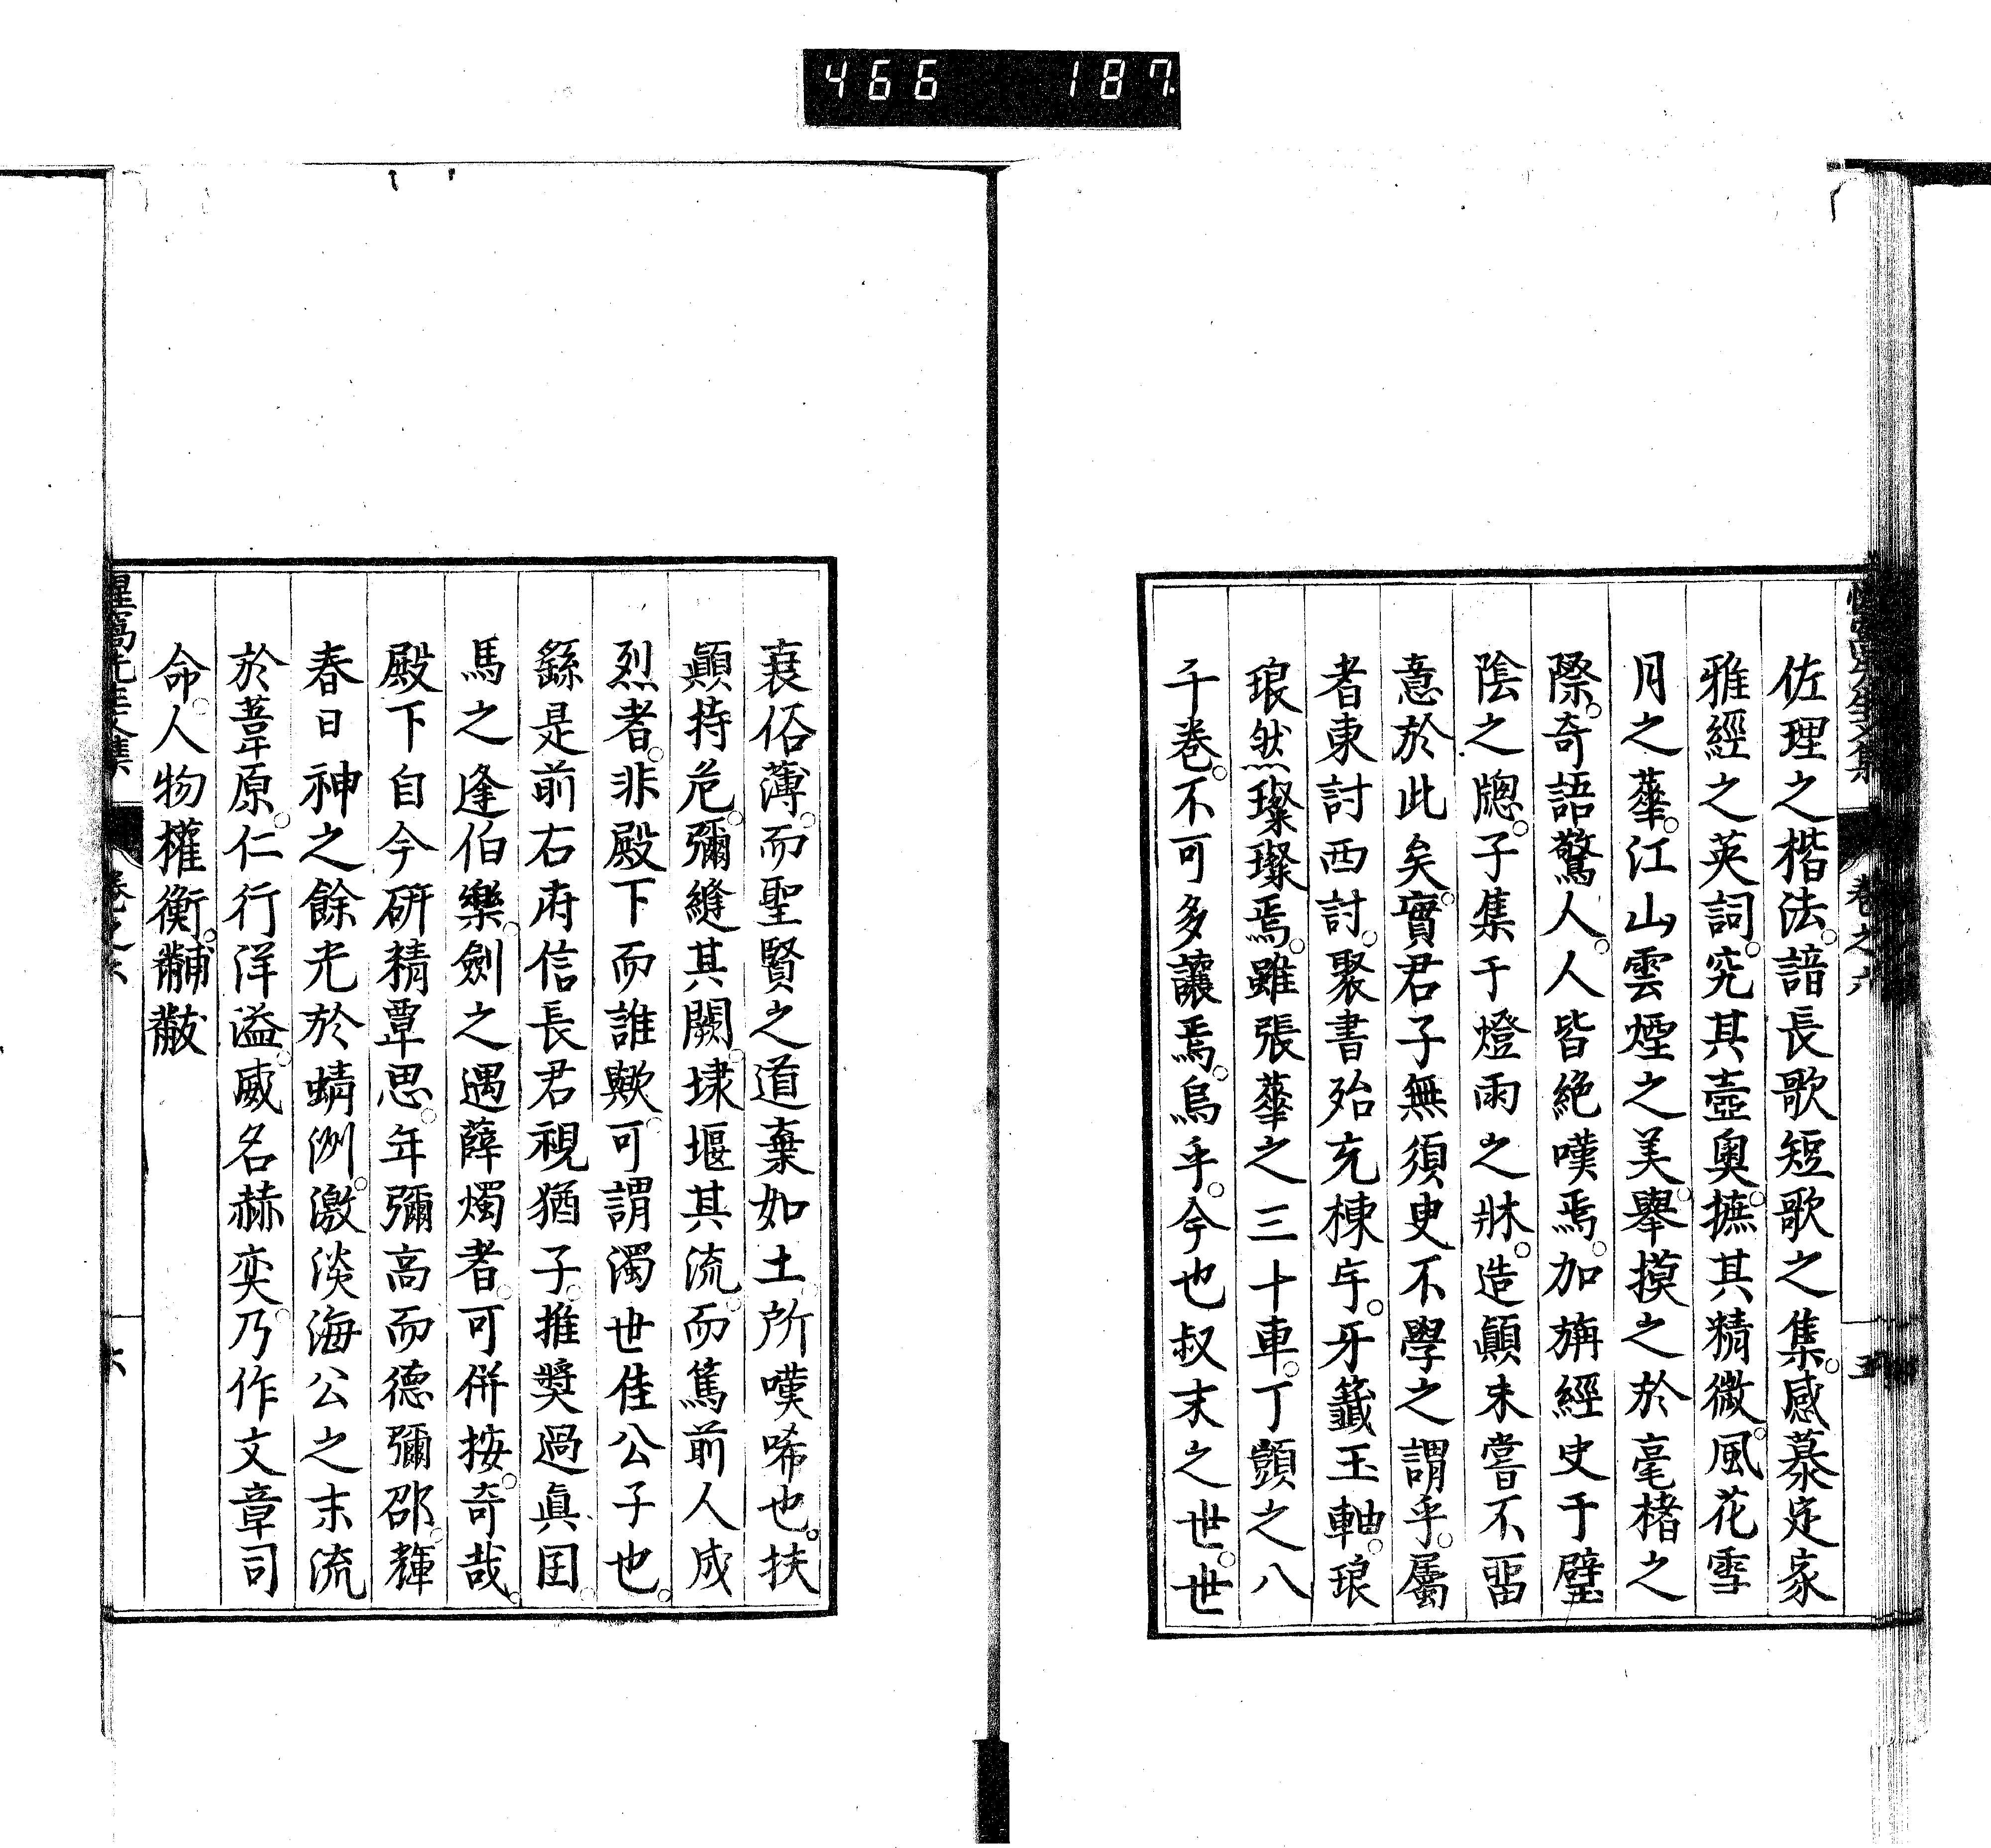 466 187
佐理之楷法。諳長歌短歌之集。感慕定家
雅經之英詞。究其壼奧。摭其精微。風花雪
月之華。江山雲煙之美。舉摸之於毫楮之
際。奇語驚人。人皆絕嘆焉。加旃經史于壁
陰之牎。子集于燈雨之牀。造顛未嘗不畱
意於此矣。實君子無須臾不學之謂乎。屬
者東討西討。聚書殆充棟宇。牙籤玉軸。琅
琅然璨璨焉。雖張華之三十車。丁顗之八
千卷。不可多讓焉。烏乎。今也叔末之世。世
卷之六
五
衰俗薄。而聖賢之道棄如土。所嘆唏也。扶
顛持危。彌縫其闕。埭堰其流。而篤前人成
烈者。非殿下而誰歟。可謂濁世佳公子也。
繇是前右府信長君視猶子。推獎過眞囝。
馬之逢伯樂。劍之遇薛燭者。可併按。奇哉。
殿下自今研精覃思。年彌高而德彌邵。輝
春日神之餘光於蜻洲。激淡海公之末流
於葦原。仁行洋溢。威名赫奕。乃作文章司
命。人物權衡。黼黻
惺窩先生文集
卷之六
六